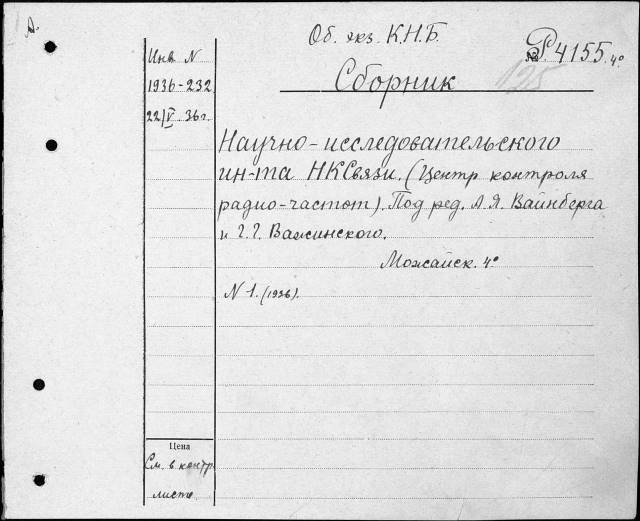 Д.
Об. экз. К.Н.Б.
№ Р4155. 4°
125
Сборник
Инв N
1936-232
22/V 36 г.
Научно-исследовательского
ин-та НКСвязи. (Центр контроля
радио-частот). Под ред. А.Я. Вайнберга
и Г.Г. Важинского.
Можайск. 4°
N 1. (1936).
Цена
См. в контр.
листе